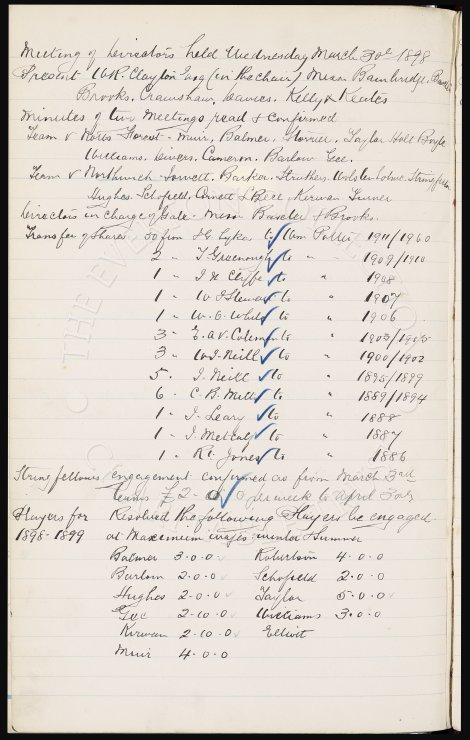 Meeting of Directors held Wednesday March 30th 1898
Present W.R. Clayton Esq (in the chair) Messrs Bainbridge, Baxter
Brooks, Crawshaw, Davies, Kelly & Keates
Minutes of two Meetings read & confirmed
Team v Notts Forest - Muir, Balmer, Storrier, Taylor Holt Boyle
Williams. Divers. Cameron. Barlow Gee.
Team v Northwich - Barker. Struthers. Wolstenholme. Stringfellow
Hughes Schofield. Bell. Kirwan Turner
Directors in charge of Gate. Messrs Baxter & Brooks.
Transfer of Shares. 50 from to Wm 1911/1960
2 " T Greenough to " 1909/1910
1 " to " 1908
1 " to " 1907
1 " to " 1906
3 " to " 1903/1905
3 " Neill to " 1900/1902
5 " J. Neill to " 1895/1899
6 " C. B. to " 1889/1894
1 " J. Leary to " 1888
1 " J. Metcalf to " 1887
1 " Jones to " 1886
Stringfellows engagement confirmed as from March 3rd
terms £2-0-0 per week to April 30th
Players for Resolved the following Players be engaged
1898-1899 at Maximum wages: winter & Summer
Balmer 3.0.0 Robertson 4.0.0
Barlow 2.0.0 Schofield 2.0.0
Hughes 2.0.0 Taylor 5.0.0
Gee 2.10.0 Williams 3.0.0
Kirwan 2.10.0 Elliott
Muir 4.0.0